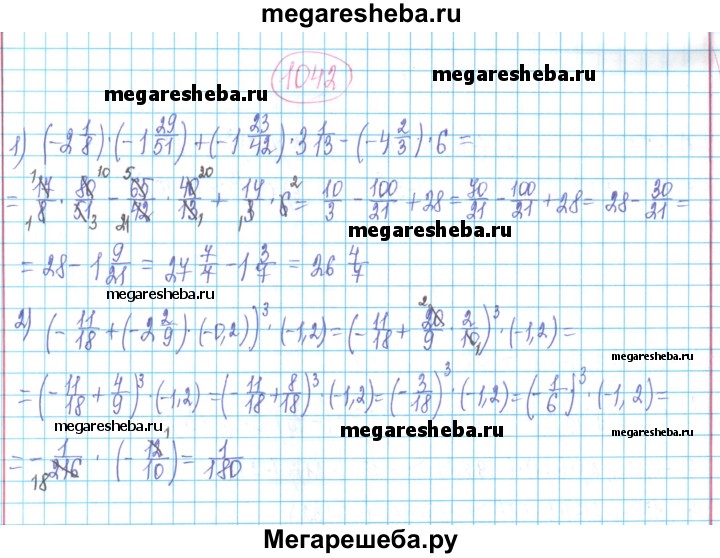 megaresheba.ru
1042
megaresheba.ru
megaresheba.ru
1) (-2 1/8) · (-1 29/51) + (-1 23/42) · 3 1/13 - (-4 2/3) · 6 =
= 17/8 · 80/51 - 65/42 · 40/13 + 14/3 · 6 = 10/3 - 100/21 + 28 = 70/21 - 100/21 + 28 = 28 - 30/21 =
megaresheba.ru
= 28 - 1 9/21 = 27 7/7 - 1 3/7 = 26 4/7
megaresheba.ru
megaresheba.ru
2) (-11/18 + (-2 2/9) · (-0,2))³ · (-1,2) = (-11/18 + 20/9 · 2/10)³ · (-1,2) =
megaresheba.ru
= (-11/18 + 4/9)³ · (-1,2) = (-11/18 + 8/18)³ · (-1,2) = (-3/18)³ · (-1,2) = (-1/6)³ · (-1,2) =
megaresheba.ru
megaresheba.ru
megaresheba.ru
= -1/216 · (-12/10) = 1/180
Мегарешеба.ру